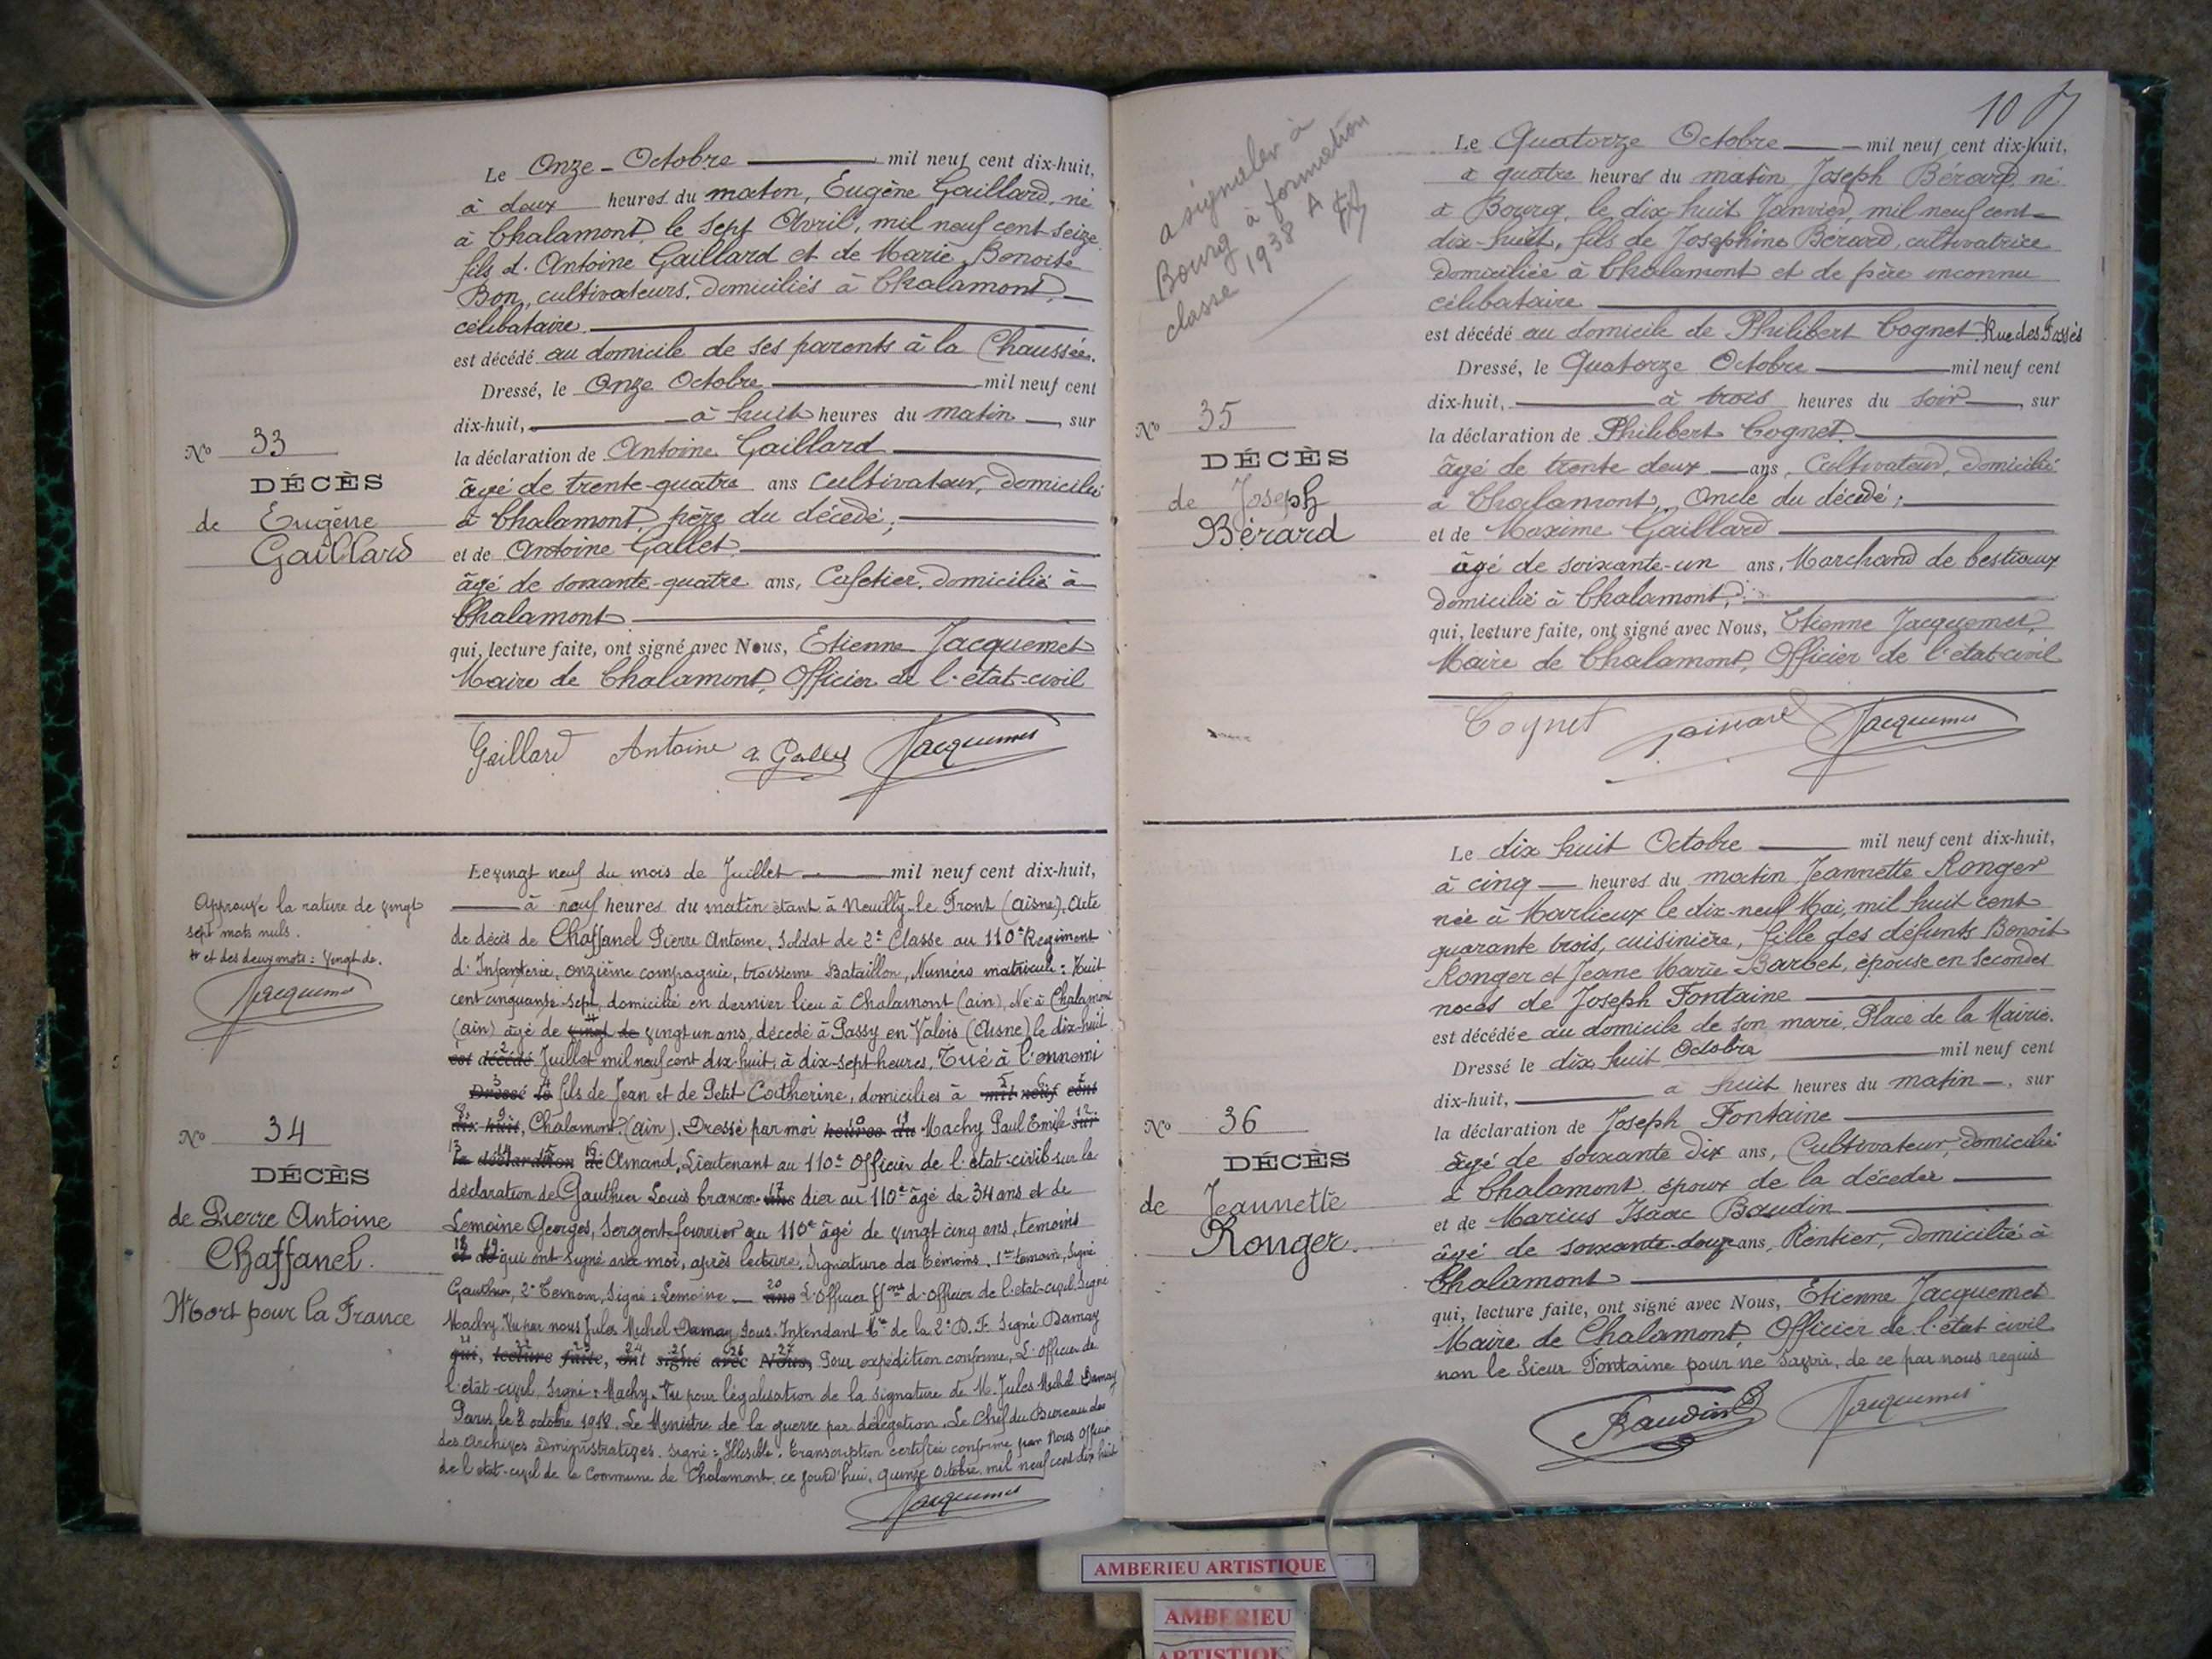 Le Onze - Octobre mil neuf cent dix-huit,
à deux heures du matin, Eugène Gaillard, né
à Chalamont, le sept Avril, mil neuf cent seize
fils d. Antoine Gaillard et de Marie Benoite
Bon, cultivateurs, domiciliés à Chalamont,
célibataire
est décédé au domicile de ses parents à la Chaussée.
Dressé, le Onze Octobre mil neuf cent
dix-huit, à huit heures du matin, sur
la déclaration de Antoine Gaillard
âgé de trente-quatre ans cultivateur, domicilié
à Chalamont, père du décédé;
et de Antoine Gallet
âgé de soixante-quatre ans, Cafetier, domicilié à
Chalamont
qui, lecture faite, ont signé avec Nous, Etienne Jacquemet
Maire de Chalamont, Officier de l'état-civil
Gaillard Antoine a. Gallet Jacquemet
No 33
DÉCÈS
de Eugène
Gaillard
Le vingt neuf du mois de Juillet mil neuf cent dix-huit,
à neuf heures du matin étant à Neuilly-le Front (aisne), Acte
de décès de Chaffanel Pierre Antoine, Soldat de 2e Classe au 110e Regiment
d'Infanterie, onzième compagnie, troisième Bataillon, Numéro matricule: Huit
cent cinquante-sept, domicilié en dernier lieu à Chalamont (ain), Né à Chalamont
(ain) âgé de vingt de vingt un ans, décédé à Passy en Valois (Aisne) le dix-huit
est décédé Juillet mil neuf cent dix-huit, à dix-sept heures, Tué à l'ennemi
Dressé le fils de Jean et de Petit Catherine, domiciliés à mil neuf cent
dix-huit, Chalamont (ain). Dressé par moi heures du Machy Paul Emile sur
la déclaration de Amand, Lieutenant au 110e Officier de l'état-civil sur la
déclaration de Gauthier Louis brancar- ans dier au 110e âgé de 34 ans et de
Lemoine Georges, Sergent-fourrier au 110e âgé de vingt cinq ans, témoins
et de qui ont signé avec moi, après lecture. Signature des témoins. 1er témoin, Signé
Gauthier, 2e Témoin, Signé: Lemoine ans L'Officier ffons d'officier de l'état-civil Signé
Machy. Vu par nous Jules Michel Damay Sous-Intendant Mre de la 2e D. F. Signé Damay
qui, lecture faite, ont signé avec Nous, Pour expédition conforme, L'officier de
l'état-civil, Signé: Machy. Vu pour légalisation de la signature de M. Jules Michel Damay
Paris, le 8 octobre 1918, Le Ministre de la guerre par délégation, Le Chef du Bureau des
des Archives administratives. Signé: Illisible. Transcription certifiée conforme par Nous Officier
de l'état-civil de la Commune de Chalamont, ce jourd'hui, quinze Octobre mil neuf cent dix huit
Jacquemet
Approuvé la rature de vingt
sept mots nuls.
et des deux mots: vingt de.
Jacquemet
No 34
DÉCÈS
de Pierre Antoine
Chaffanel.
Mort pour la France
10
a signaler à
Bourg à formation
classe 1938 A
Le Quatorze Octobre mil neuf cent dix-huit,
à quatre heures du matin Joseph Bérard, né
à Bourg, le dix-huit Janvier, mil neuf cent
dix-huit, fils de Josephine Bérard, cultivatrice
domiciliée à Chalamont et de père inconnu
célibataire
est décédé au domicile de Philibert Cognet Rue des Fossés
Dressé, le Quatorze Octobre mil neuf cent
dix-huit, à trois heures du soir, sur
la déclaration de Philibert Cognet
âgé de trente deux ans, Cultivateur, domicilié
à Chalamont, Oncle du décédé;
et de Maxime Gaillard
âgé de soixante-un ans, Marchand de bestiaux
domicilié à Chalamont,
qui, lecture faite, ont signé avec Nous, Etienne Jacquemet,
Maire de Chalamont, Officier de l'état-civil
Cognet Jacquemet
No 35
DÉCÈS
de Joseph
Bérard
Le dix huit Octobre mil neuf cent dix-huit,
à cinq heures du matin Jeannette Ronger
née à Marlieux le dix-neuf Mai, mil huit cent
quarante trois, cuisinière, fille des défunts Benoit
Ronger et Jeane Marie Barbet, épouse en secondes
noces de Joseph Fontaine
est décédée au domicile de son mari, Place de la Mairie.
Dressé le dix huit Octobre mil neuf cent
dix-huit, à huit heures du matin, sur
la déclaration de Joseph Fontaine
âgé de soixante dix ans, Cultivateur, domicilié
à Chalamont, époux de la décédée
et de Marius Isaac Baudin
âgé de soixante-douze ans, Rentier, domicilié à
Chalamont
qui, lecture faite, ont signé avec Nous, Etienne Jacquemet
Maire de Chalamont, Officier de l'état civil
non le sieur Fontaine pour ne savoir, de ce par nous requis
Baudin Jacquemet
No 36
DÉCÈS
de Jeannette
Ronger.
AMBERIEU ARTISTIQUE
AMBERIEU
ARTISTIQUE